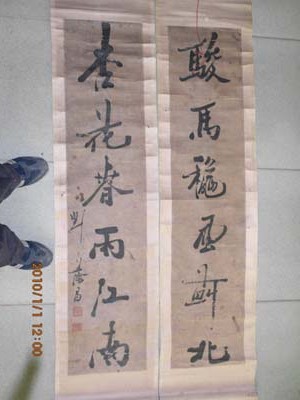 駿馬龝風薊北
杏花春雨江南
2010/1/1 12:00